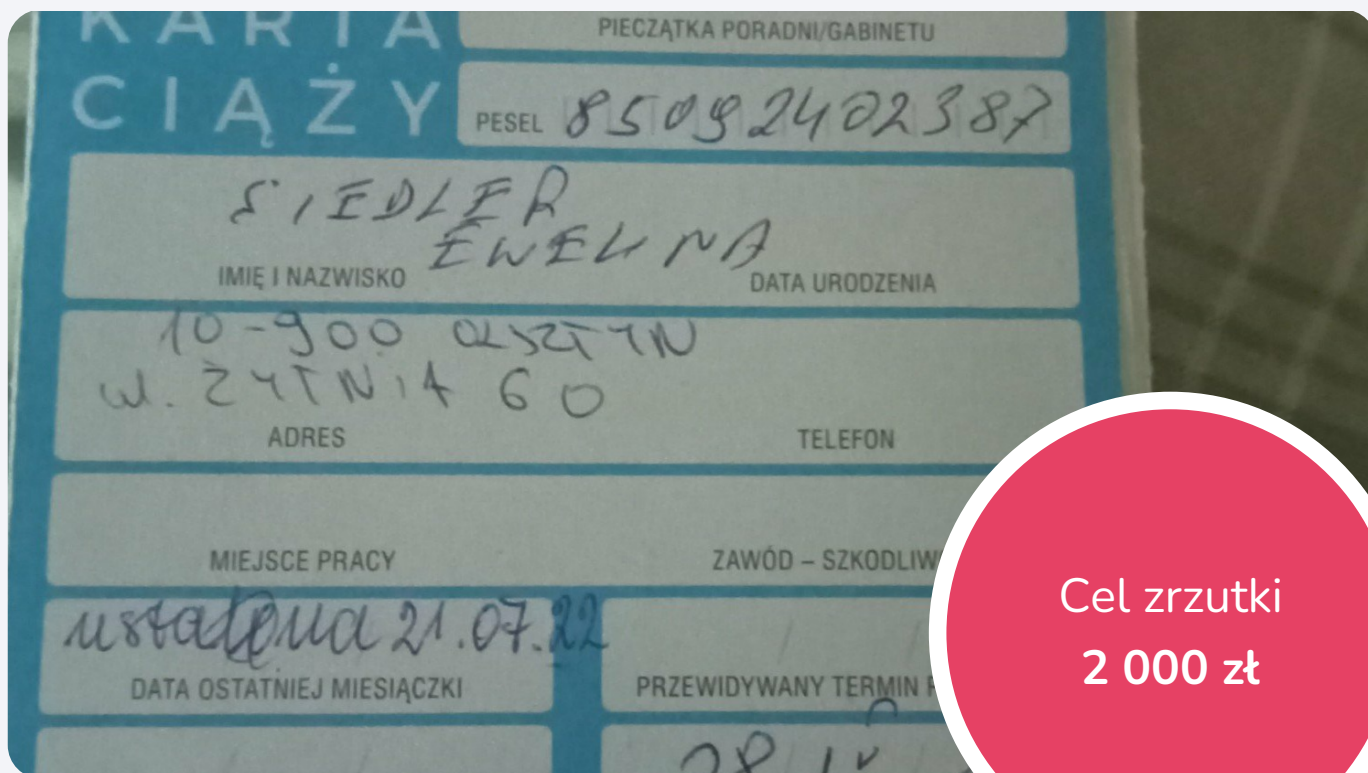 KARTA
PIECZĄTKA PORADNI/GABINETU
CIĄŻY
PESEL 85092402387
SIEDLER
EWELINA
IMIĘ I NAZWISKO DATA URODZENIA
10-900 OLSZTYN
ul. ŻYTNIA 60
ADRES TELEFON
MIEJSCE PRACY ZAWÓD –
ustalona 21.07.22
DATA OSTATNIEJ MIESIĄCZKI PRZEWIDYWANY TERMIN
Cel zrzutki
2 000 zł